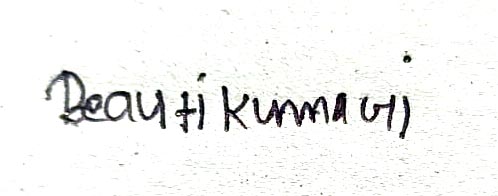 Beauti kumari